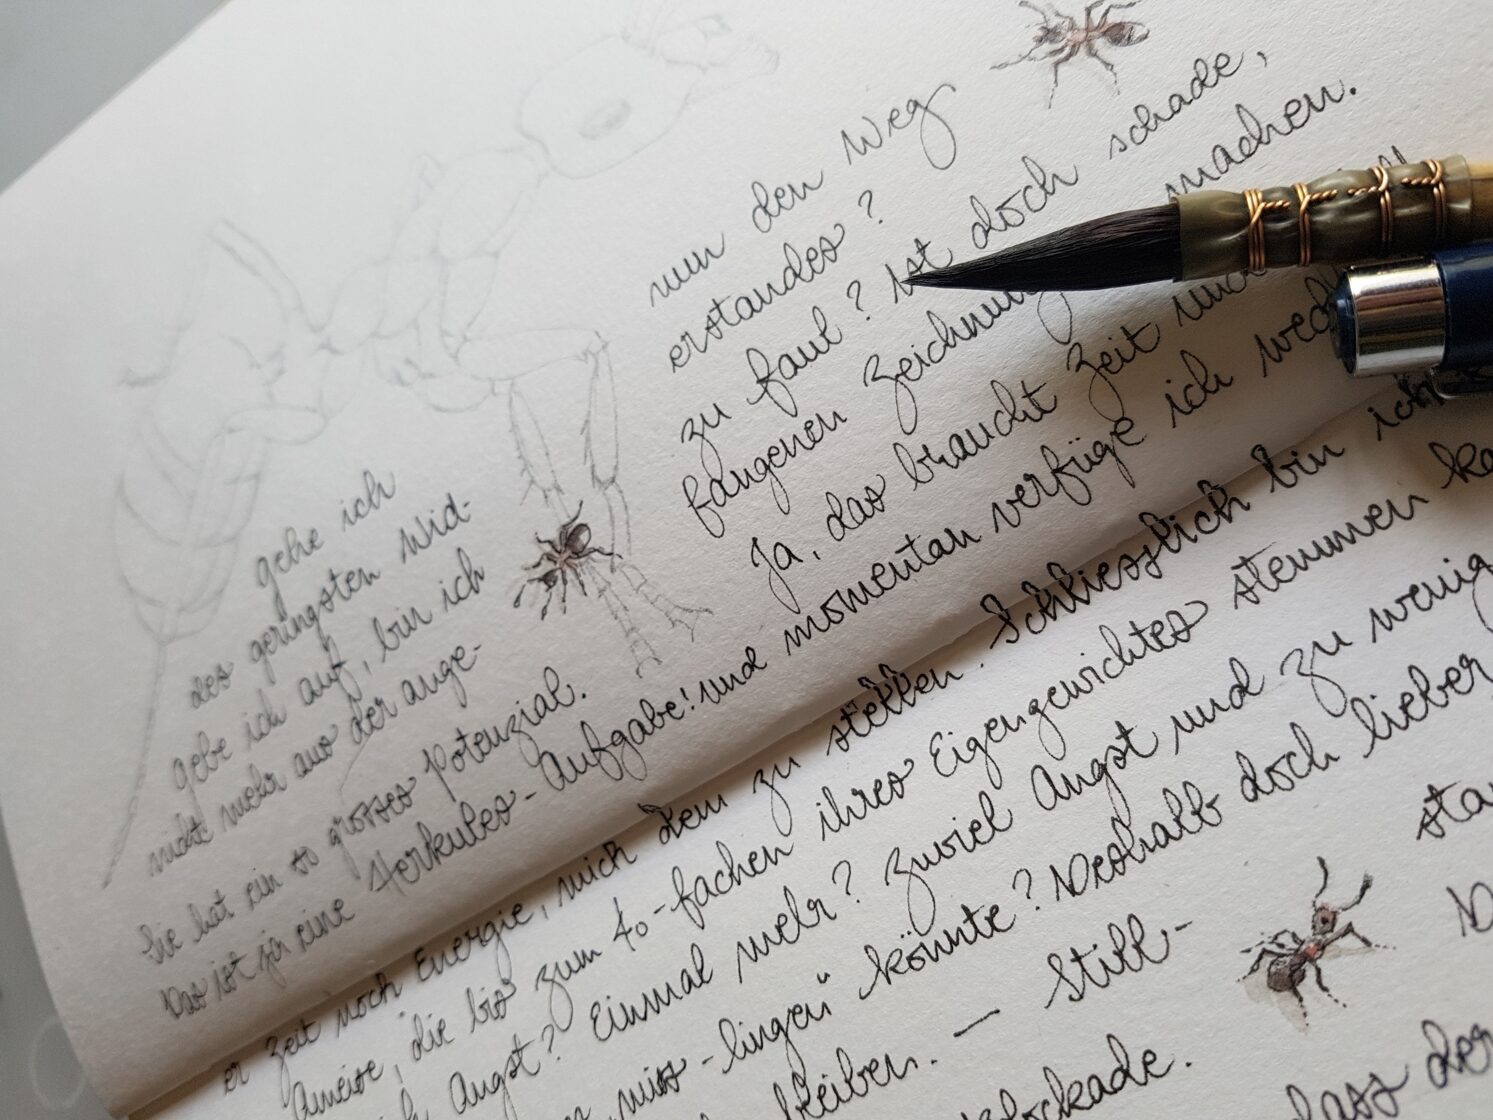 nun den Weg
gehe ich
des geringsten Wid-
erstandes?
gebe ich auf, bin ich
zu faul? Ist doch schade,
nicht mehr aus der ange-
fangenen Zeichnung machen.
Sie hat ein so grosses Potenzial.
Ja, das braucht Zeit und
Das ist ja eine Herkules-Aufgabe! Und momentan verfüge ich
er Zeit noch Energie, mich dem zu stellen. Schliesslich bin ich
Ameise, die bis zum 40-fachen ihres Eigengewichtes stemmen
Angst? Einmal mehr? Zuviel Angst und zu wenig
miss-lingen" könnte? Deshalb doch lieber
bleiben. — Still-
dass der